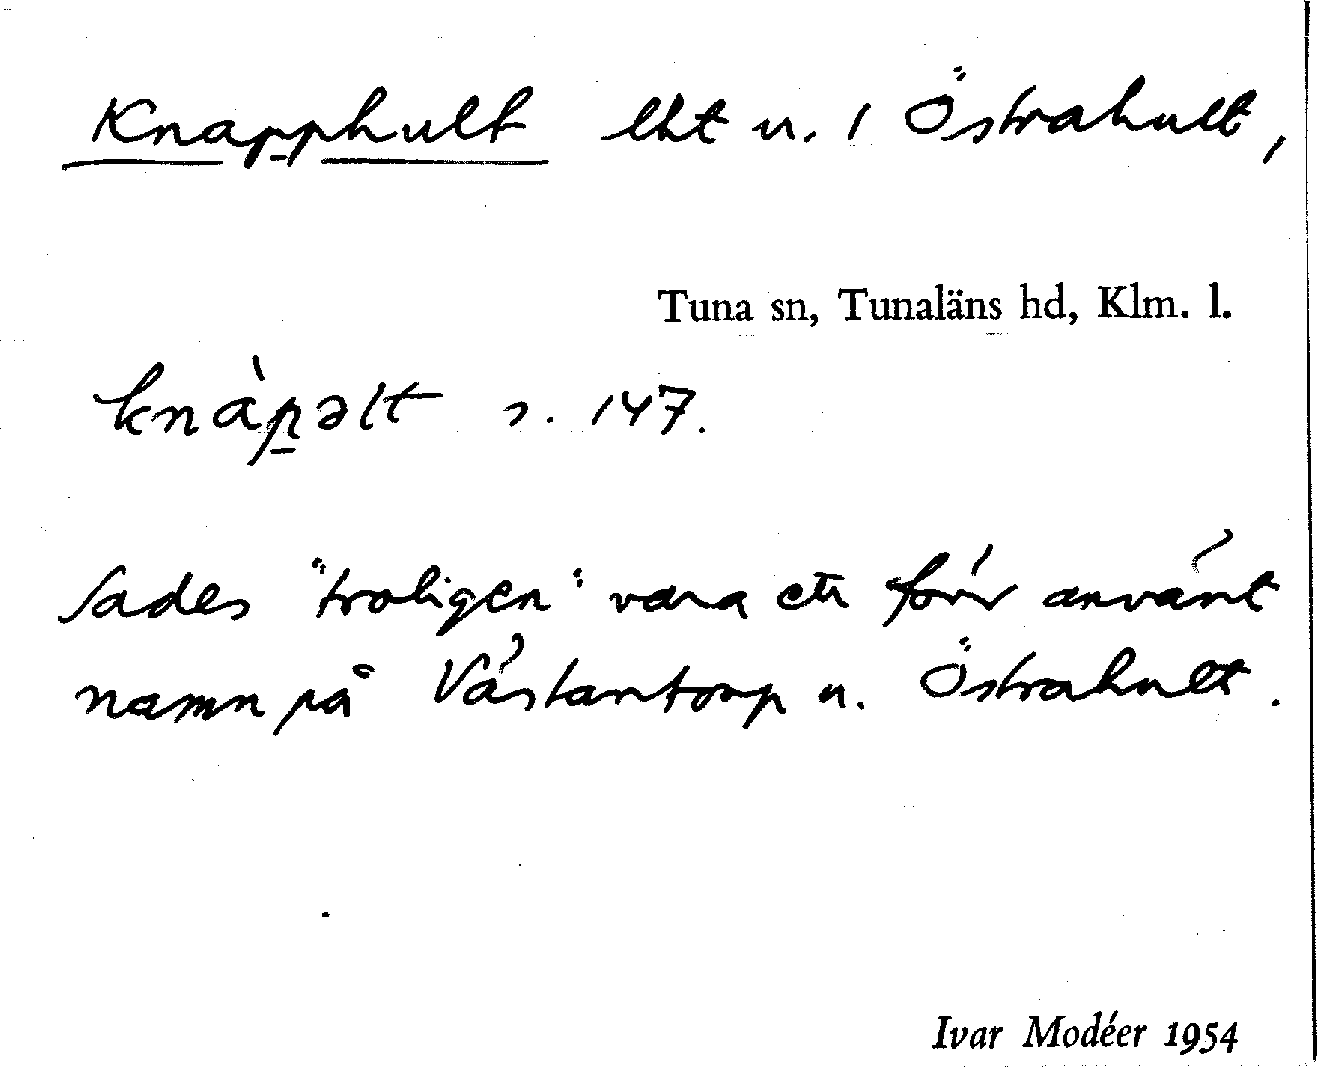 Knapphult lht u. 1 Östrahult,
Tuna sn, Tunaläns hd, Klm. l.
knàp̱əlt s. 147.
Sades "troligen" vara ett förr använt
namn på Västantorp u. Östrahult.
Ivar Modéer 1954